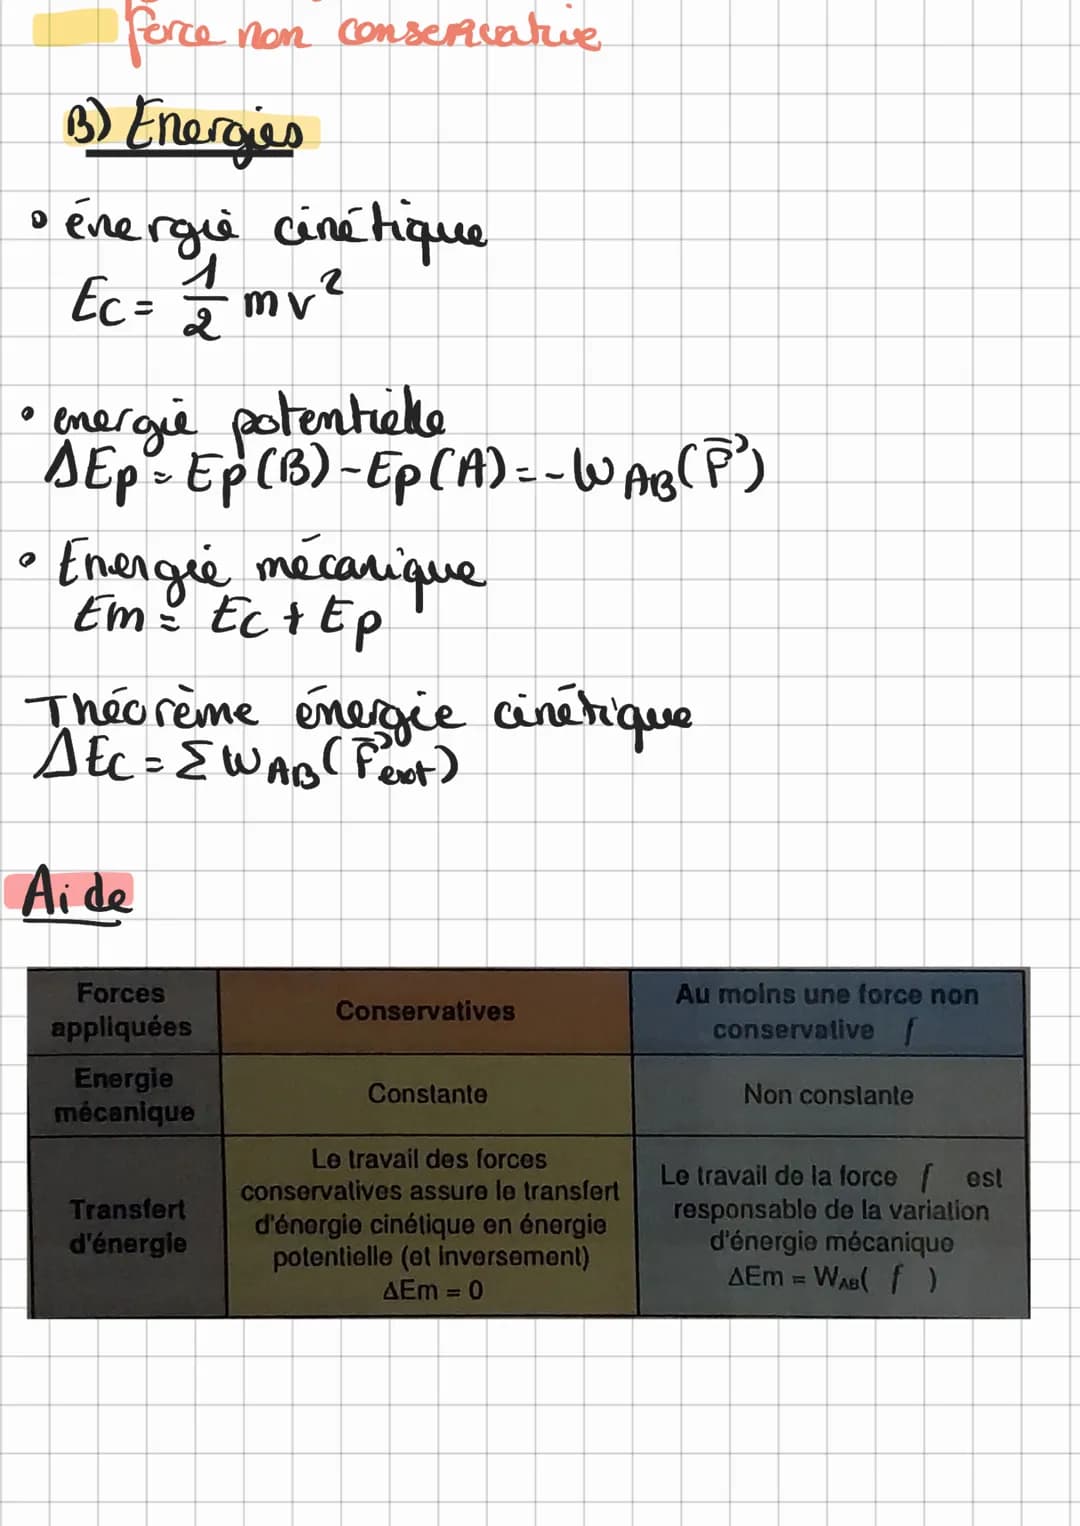 force non conservative
B) Energies
• énergie cinétique
Ec = 1/2 mv²
• energie potentielle
ΔEp = Ep(B) - Ep(A) = - W AB(P⃗)
• Energie mécanique
Em = Ec + Ep
Théorème énergie cinétique
ΔEc = Σ W AB (F⃗ext)
Aide
Forces appliquées
Conservatives
Au moins une force non conservative f
Energie mécanique
Constante
Non constante
Transfert d'énergie
Le travail des forces
conservatives assure le transfert
d'énergie cinétique en énergie
potentielle (et inversement)
ΔEm = 0
Le travail de la force f est
responsable de la variation
d'énergie mécanique
ΔEm = WAB( f )